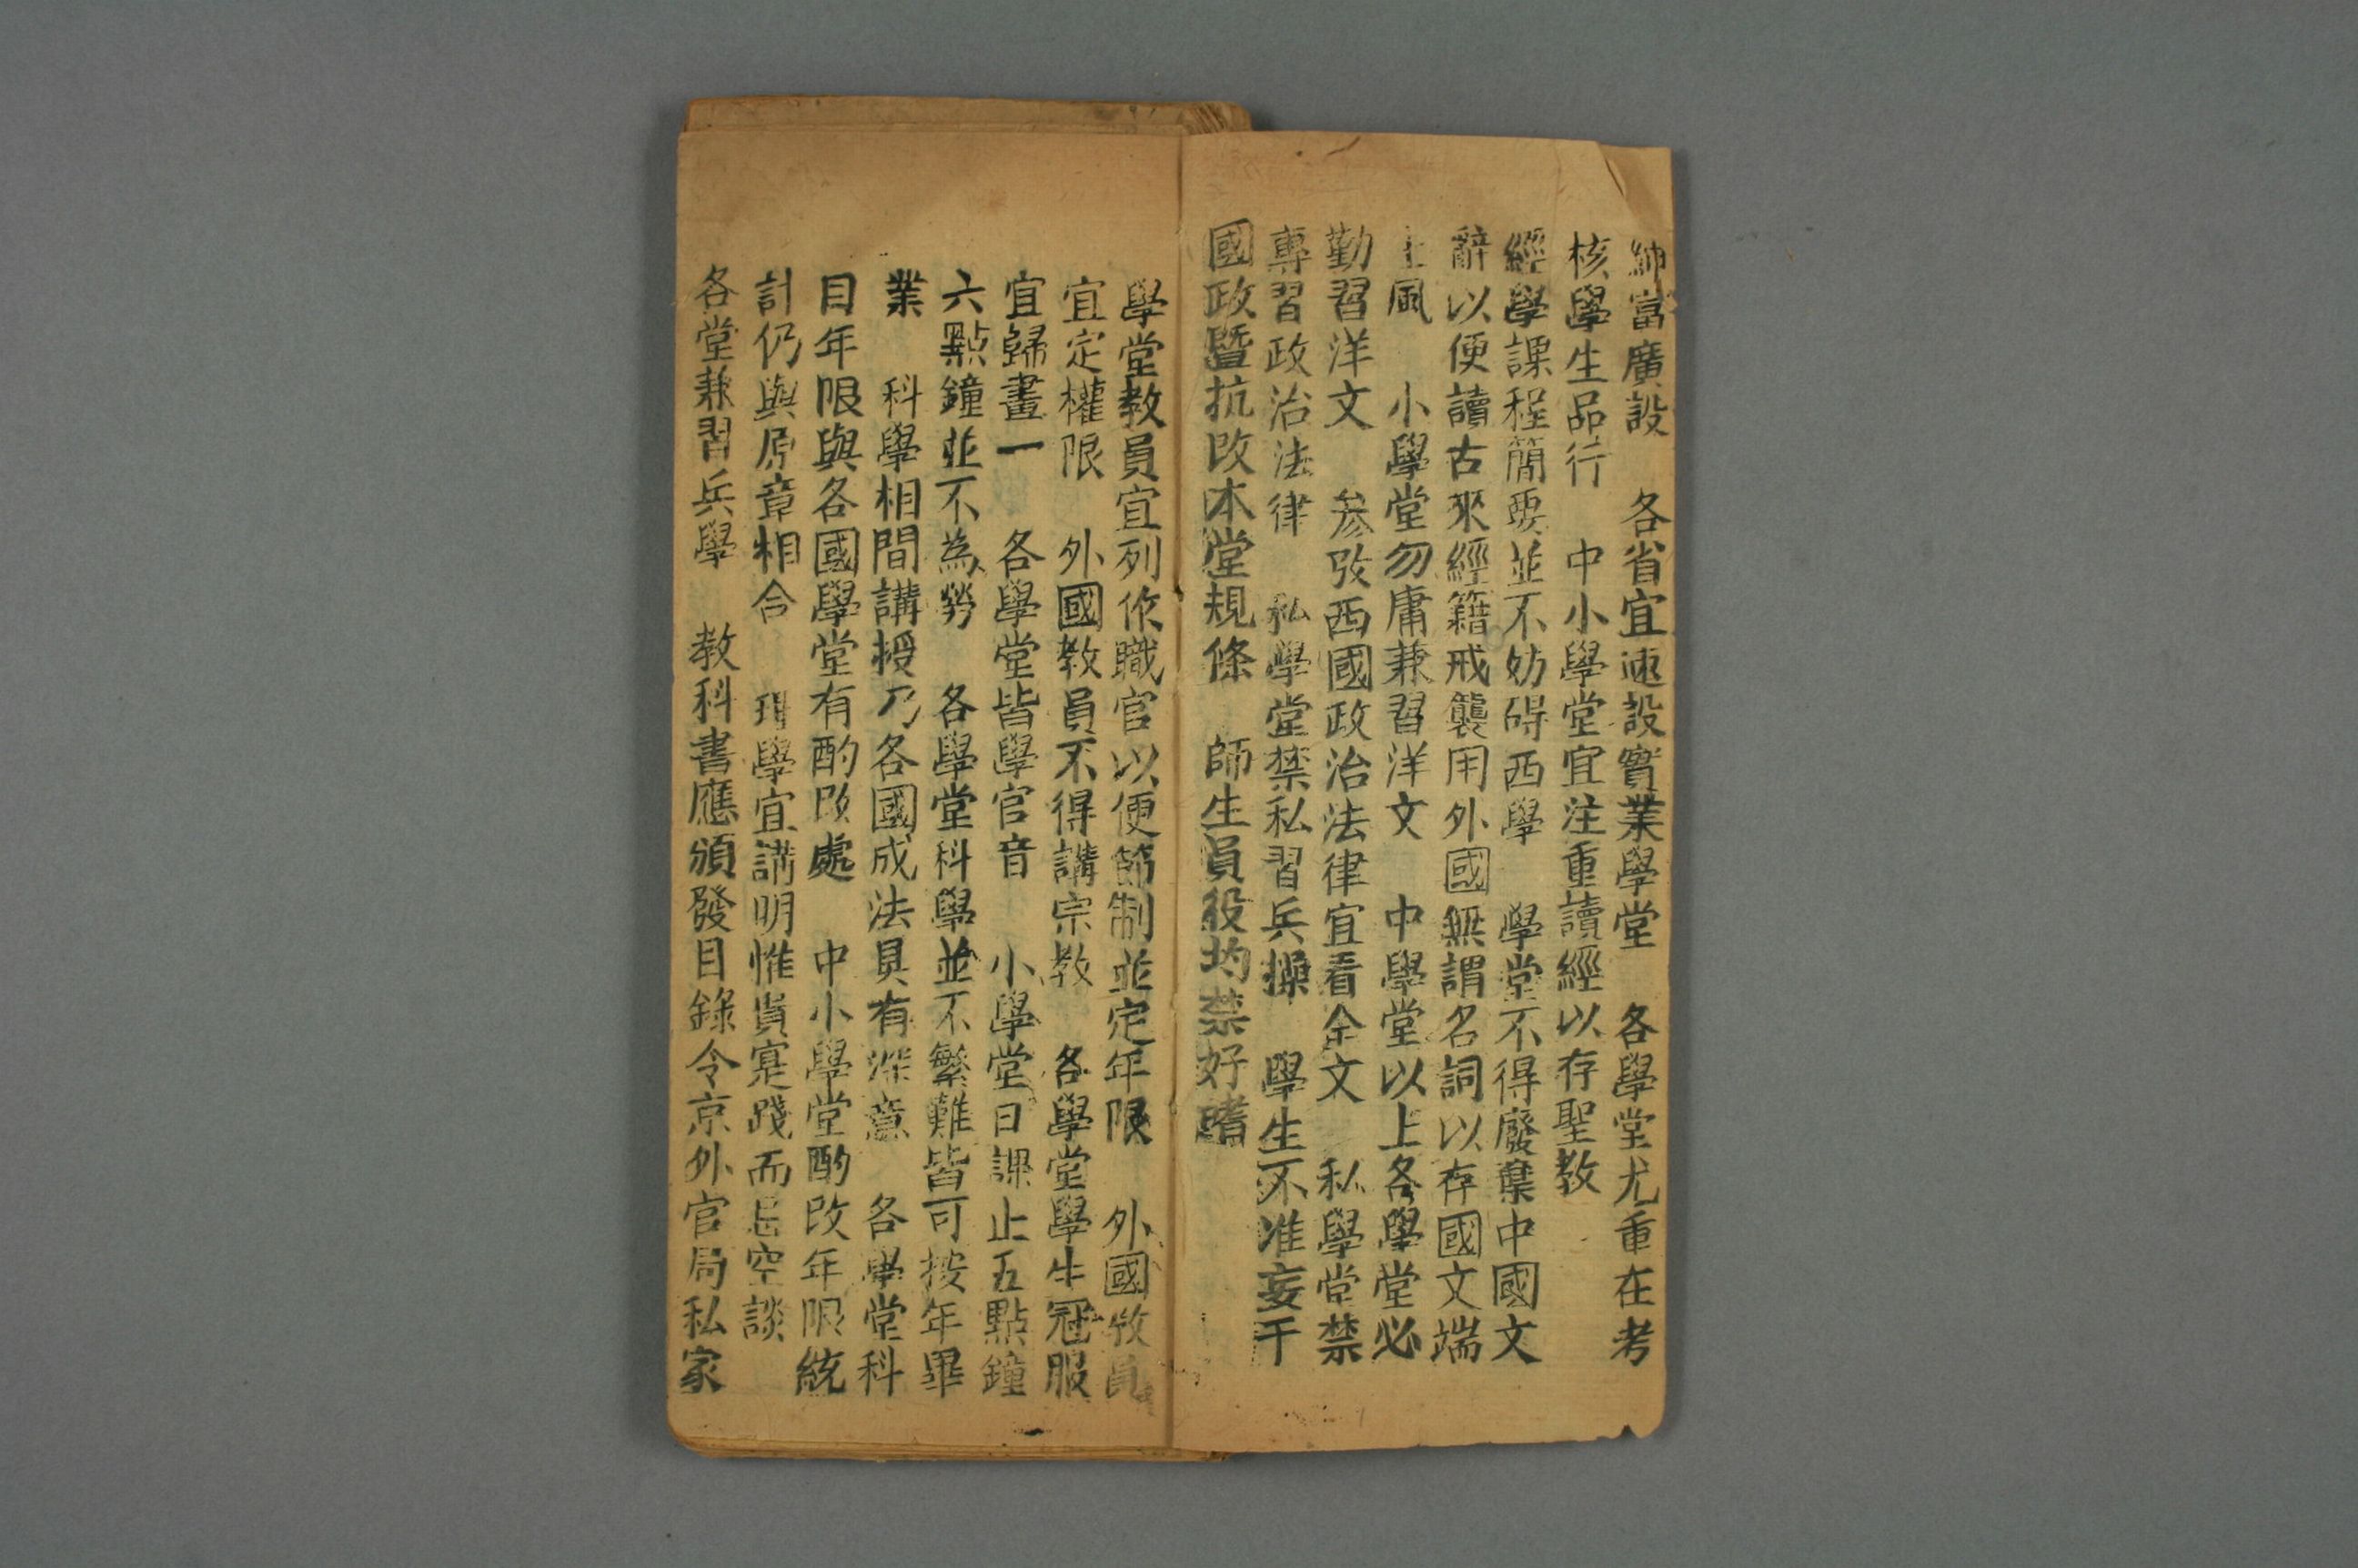 紳富廣設　各省宜速設實業學堂　各學堂尤重在考
核學生品行　中小學堂宜注重讀經以存聖教
經學課程簡要並不妨碍西學　學堂不得廢棄中國文
辭以便讀古來經籍戒襲用外國無謂名詞以存國文端
士風　小學堂勿庸兼習洋文　中學堂以上各學堂必
勤習洋文　參攷西國政治法律宜看全文　私學堂禁
專習政治法律　私學堂禁私習兵操　學生不准妄干
國政暨抗改本堂規條　師生員役均禁好嗜
學堂教員宜列作職官以便節制並定年限　外國教員
宜定權限　外國教員不得講宗教　各學堂學生冠服
宜歸畫一　各學堂皆學官音　小學堂日課止五點鐘
六點鐘並不為勞　各學堂科學並不繁難皆可按年畢
業　科學相間講授乃各國成法具有深意　各學堂科
目年限與各國學堂有酌改處　中小學堂酌改年限統
計仍與原章相合　理學宜講明惟貴寔踐而忌空談
各堂兼習兵學　教科書應頒發目錄令京外官局私家